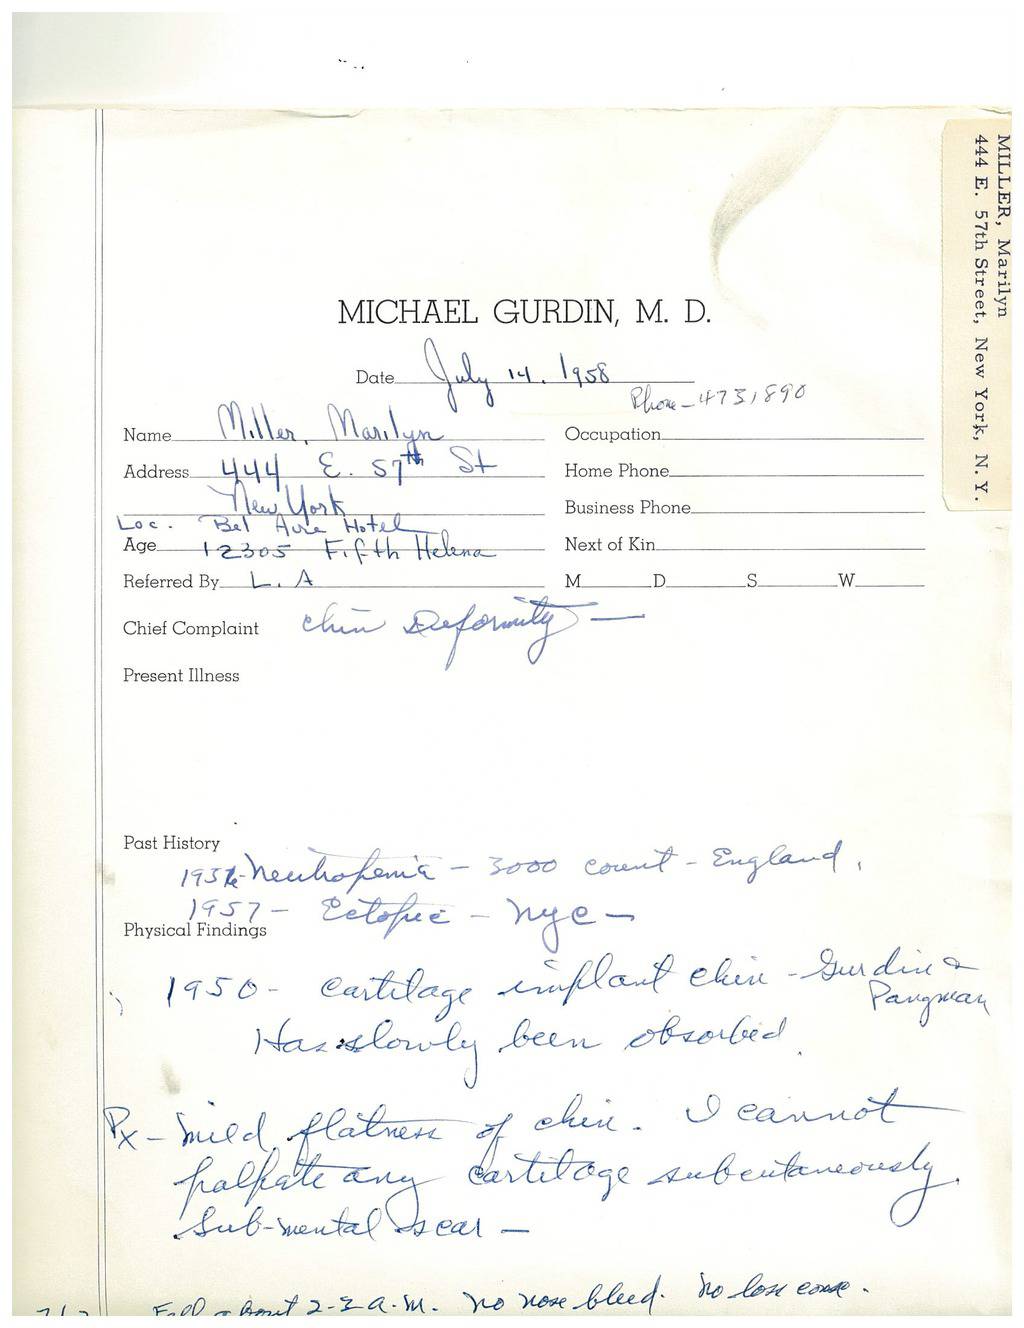 MILLER, Marilyn
444 E. 57th Street, New York, N. Y.
MICHAEL GURDIN, M. D.
Date July 14, 1958
Phone - 4731890
Name Miller, Marilyn
Occupation
Address 444 E. 57th St
Home Phone
New York
Business Phone
Loc. Bel Aire Hotel
Age 12305 Fifth Helena
Next of Kin
Referred By L. A
M D S W
Chief Complaint chin Deformity —
Present Illness
Past History
Neutropenia - 3000 count - England.
1957 - Ectopic - NYC -
Physical Findings
1950 - cartilage implant chin - Gurdin &
Pangman
Has slowly been absorbed.
Px - mild flatness of chin. I cannot
palpate any cartilage subcutaneously.
Sub-mental scar -
Fell about 2-3 a.m. No nose bleed. No loss